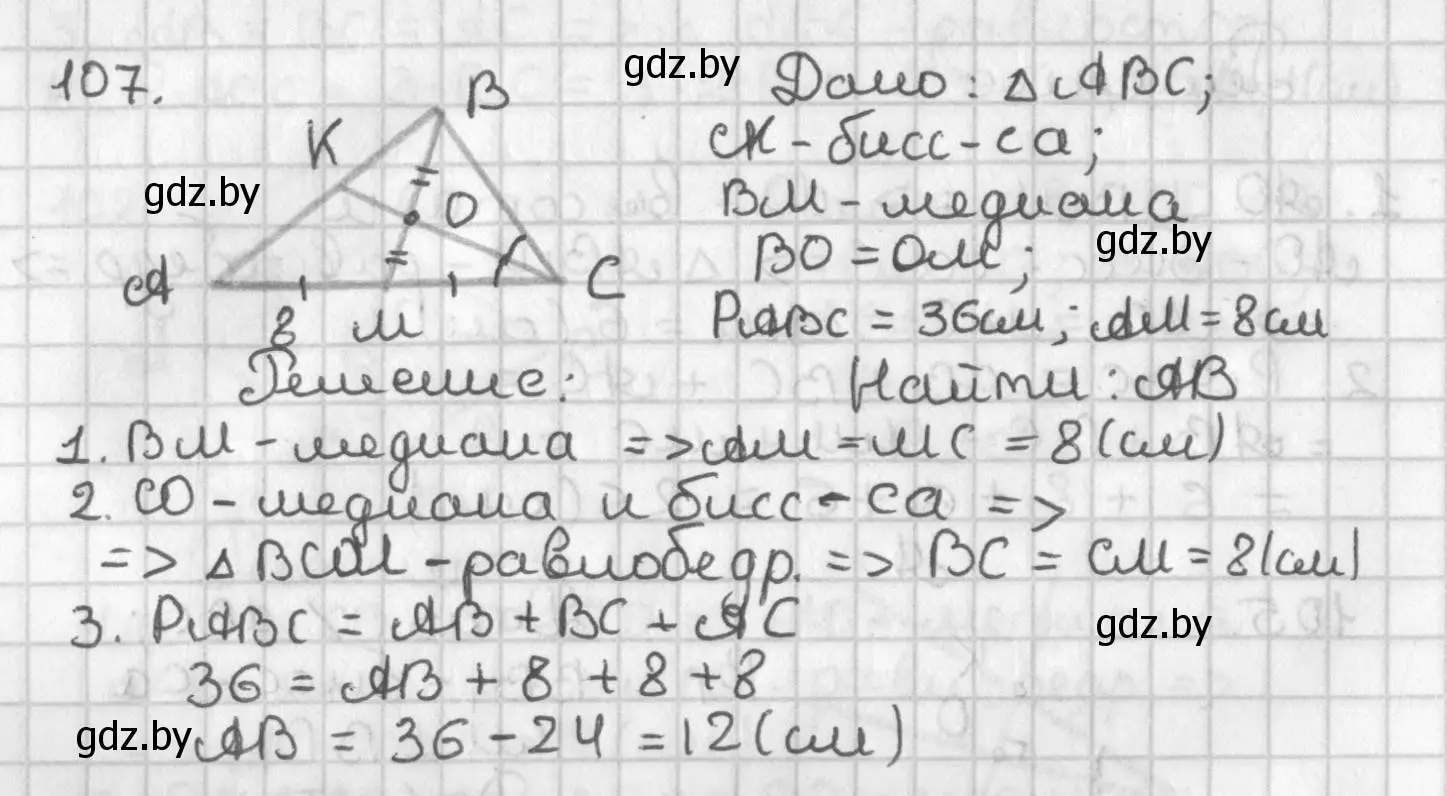 107.
gdz.by
Дано: △ABC;
B
K
CK - бисс-са;
gdz.by
O
BM - медиана
gdz.by
A
C
BO = OM;
8 M
PABC = 36см; AM = 8 см
Решение:
Найти: AB
1. BM - медиана => AM = MC = 8 (см)
2. CO - медиана и бисс-са =>
=> △BCM - равнобедр. => BC = CM = 8 (см)
3. PABC = AB + BC + AC
gdz.by
36 = AB + 8 + 8 + 8
gdz.by
AB = 36 - 24 = 12 (см)